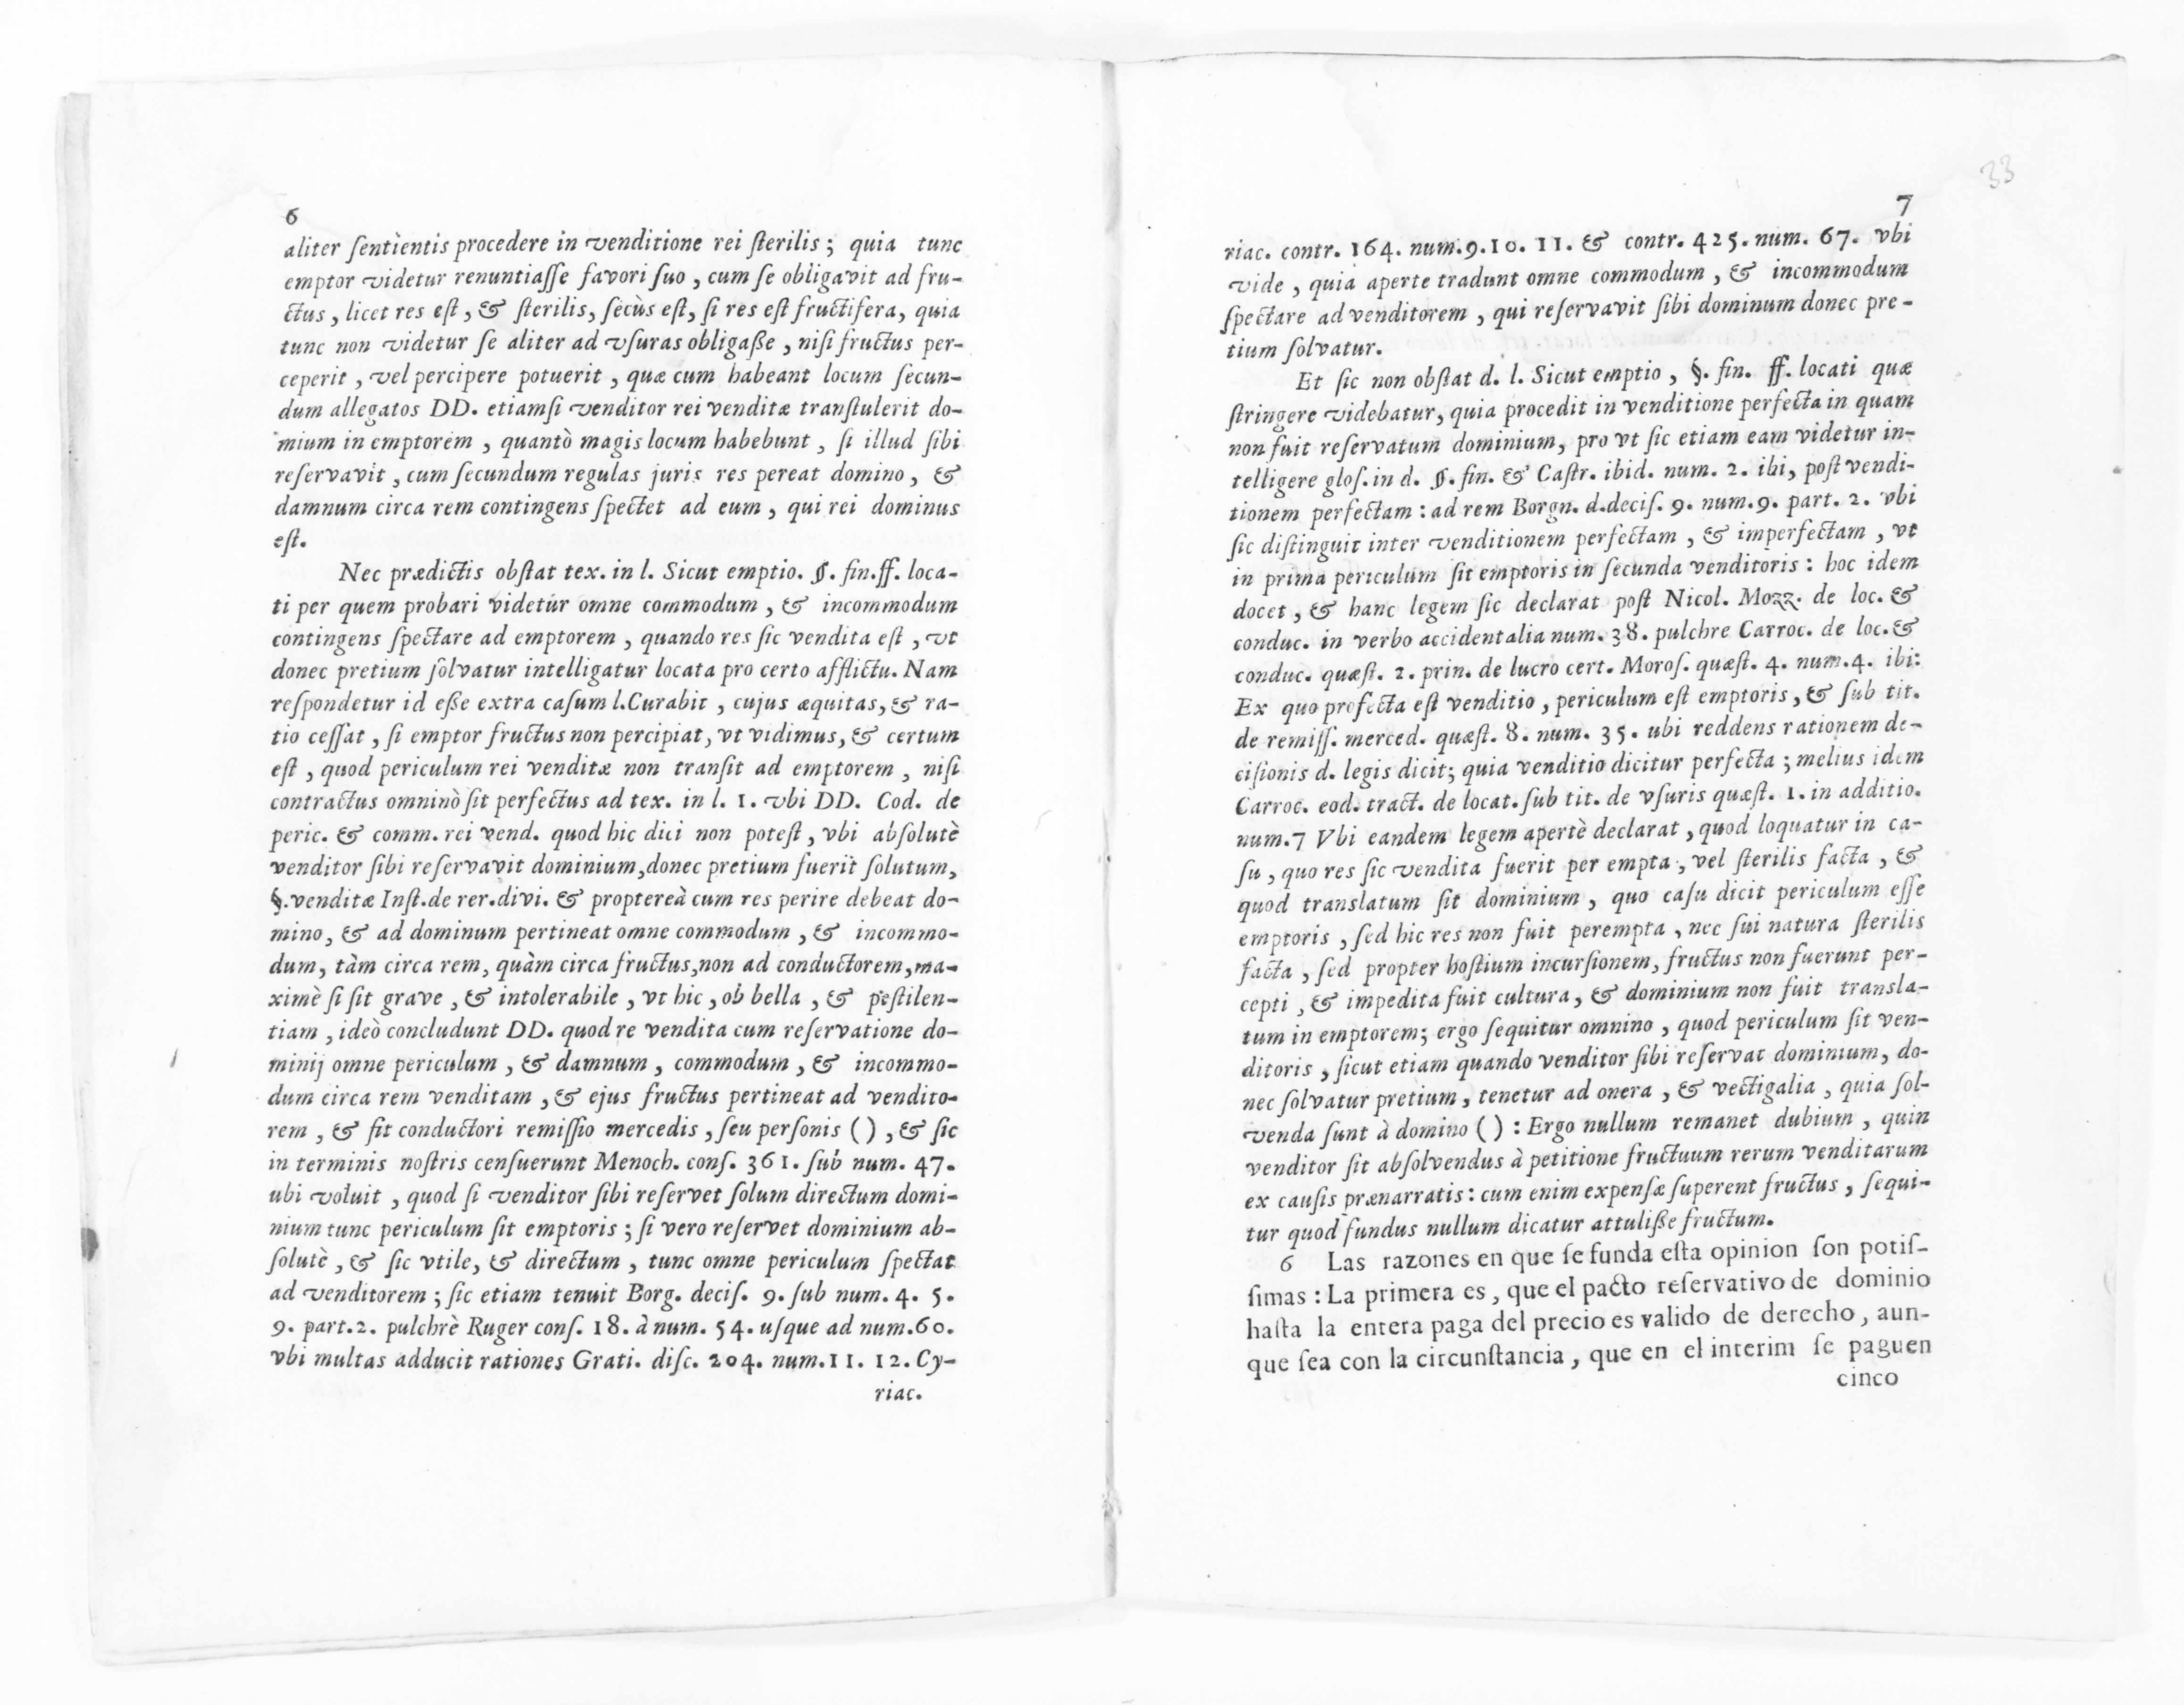 6
aliter ſentientis procedere in venditione rei ſterilis; quia tunc
emptor videtur renuntiaſſe favori ſuo, cum ſe obligavit ad fru-
ctus, licet res eſt, & ſterilis, ſecùs eſt, ſi res eſt fructifera, quia
tunc non videtur ſe aliter ad vſuras obligaſſe, niſi fructus per-
ceperit, vel percipere potuerit, quæ cum habeant locum ſecun-
dum allegatos DD. etiamſi venditor rei venditæ tranſtulerit do-
mium in emptorem, quantò magis locum habebunt, ſi illud ſibi
reſervavit, cum ſecundum regulas juris res pereat domino, &
damnum circa rem contingens ſpectet ad eum, qui rei dominus
eſt.
Nec prædictis obſtat tex. in l. Sicut emptio. §. fin. ff. loca-
ti per quem probari videtur omne commodum, & incommodum
contingens ſpectare ad emptorem, quando res ſic vendita eſt, vt
donec pretium ſolvatur intelligatur locata pro certo afflictu. Nam
reſpondetur id eſſe extra caſum l. Curabit, cujus æquitas, & ra-
tio ceſſat, ſi emptor fructus non percipiat, vt vidimus, & certum
eſt, quod periculum rei venditæ non tranſit ad emptorem, niſi
contractus omninò ſit perfectus ad tex. in l. 1. vbi DD. Cod. de
peric. & comm. rei vend. quod hic dici non poteſt, vbi abſolutè
venditor ſibi reſervavit dominium, donec pretium fuerit ſolutum,
§. venditæ Inſt. de rer. divi. & proptereà cum res perire debeat do-
mino, & ad dominum pertineat omne commodum, & incommo-
dum, tàm circa rem, quàm circa fructus, non ad conductorem, ma-
ximè ſi ſit grave, & intolerabile, vt hic, ob bella, & peſtilen-
tiam, ideò concludunt DD. quod re vendita cum reſervatione do-
minij omne periculum, & damnum, commodum, & incommo-
dum circa rem venditam, & ejus fructus pertineat ad vendito-
rem, & fit conductori remiſſio mercedis, ſeu perſonis ( ), & ſic
in terminis noſtris cenſuerunt Menoch. conſ. 361. ſub num. 47.
ubi voluit, quod ſi venditor ſibi reſervet ſolum directum domi-
nium tunc periculum ſit emptoris; ſi vero reſervet dominium ab-
ſolutè, & ſic vtile, & directum, tunc omne periculum ſpectat
ad venditorem; ſic etiam tenuit Borg. deciſ. 9. ſub num. 4. 5.
9. part. 2. pulchrè Ruger conſ. 18. à num. 54. uſque ad num. 60.
vbi multas adducit rationes Grati. diſc. 204. num. 11. 12. Cy-
riac.
33
7
riac. contr. 164. num. 9. 10. 11. & contr. 425. num. 67. vbi
vide, quia aperte tradunt omne commodum, & incommodum
ſpectare ad venditorem, qui reſervavit ſibi dominum donec pre-
tium ſolvatur.
Et ſic non obſtat d. l. Sicut emptio, §. fin. ff. locati quæ
ſtringere videbatur, quia procedit in venditione perfecta in quam
non fuit reſervatum dominium, pro vt ſic etiam eam videtur in-
telligere gloſ. in d. §. fin. & Caſtr. ibid. num. 2. ibi, poſt vendi-
tionem perfectam: ad rem Borgn. d. deciſ. 9. num. 9. part. 2. vbi
ſic diſtinguit inter venditionem perfectam, & imperfectam, vt
in prima periculum ſit emptoris in ſecunda venditoris: hoc idem
docet, & hanc legem ſic declarat poſt Nicol. Mozz. de loc. &
conduc. in verbo accidentalia num. 38. pulchre Carroc. de loc. &
conduc. quæſt. 2. prin. de lucro cert. Moroſ. quæſt. 4. num. 4. ibi:
Ex quo profecta eſt venditio, periculum eſt emptoris, & ſub tit.
de remiſſ. merced. quæſt. 8. num. 35. ubi reddens rationem de-
ciſionis d. legis dicit; quia venditio dicitur perfecta; melius idem
Carroc. eod. tract. de locat. ſub tit. de vſuris quæſt. 1. in additio.
num. 7 Vbi eandem legem apertè declarat, quod loquatur in ca-
ſu, quo res ſic vendita fuerit per empta, vel ſterilis facta, &
quod translatum ſit dominium, quo caſu dicit periculum eſſe
emptoris, ſed hic res non fuit perempta, nec ſui natura ſterilis
facta, ſed propter hoſtium incurſionem, fructus non fuerunt per-
cepti, & impedita fuit cultura, & dominium non fuit transla-
tum in emptorem; ergo ſequitur omnino, quod periculum ſit ven-
ditoris, ſicut etiam quando venditor ſibi reſervat dominium, do-
nec ſolvatur pretium, tenetur ad onera, & vectigalia, quia ſol-
venda ſunt à domino ( ): Ergo nullum remanet dubium, quin
venditor ſit abſolvendus à petitione fructuum rerum venditarum
ex cauſis prænarratis: cum enim expenſæ ſuperent fructus, ſequi-
tur quod fundus nullum dicatur attuliſſe fructum.
6 Las razones en que ſe funda eſta opinion ſon potiſ-
ſimas: La primera es, que el pacto reſervativo de dominio
haſta la entera paga del precio es valido de derecho, aun-
que ſea con la circunſtancia, que en el interim ſe paguen
cinco